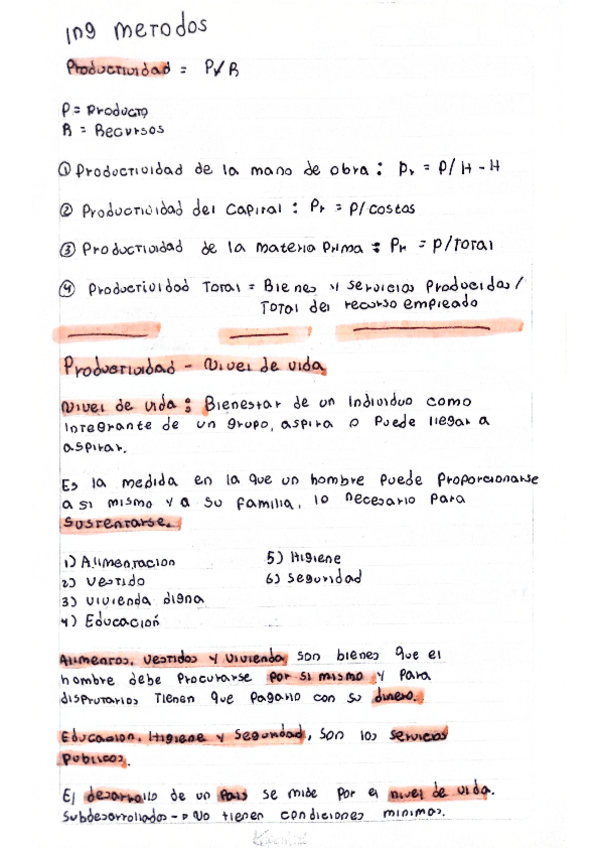 ing metodos
Productividad = P/R
P = Producto
R = Recursos
① Productividad de la mano de obra : Pr = P/H-H
② Productividad del capital : Pr = P/costos
③ Productividad de la materia prima : Pr = P/total
④ Productividad Total = Bienes y servicios producidos/
Total del recurso empleado
Productividad - Nivel de vida
Nivel de vida : Bienestar de un individuo como
integrante de un grupo, aspira o puede llegar a
aspirar.
Es la medida en la que un hombre puede proporcionarse
a si mismo y a su familia, lo necesario para
sustentarse.
1) Alimentacion
2) Vestido
3) vivienda digna
4) Educación
5) Higiene
6) seguridad
Alimentos, vestidos y vivienda son bienes que el
hombre debe procurarse por si mismo y para
disfrutarlos tienen que pagarlo con su dinero.
Educacion, Higiene y Seguridad, son los servicios
publicos.
El desarrollo de un pais se mide por el nivel de vida.
Subdesarrollados -> No tienen condiciones minimas.